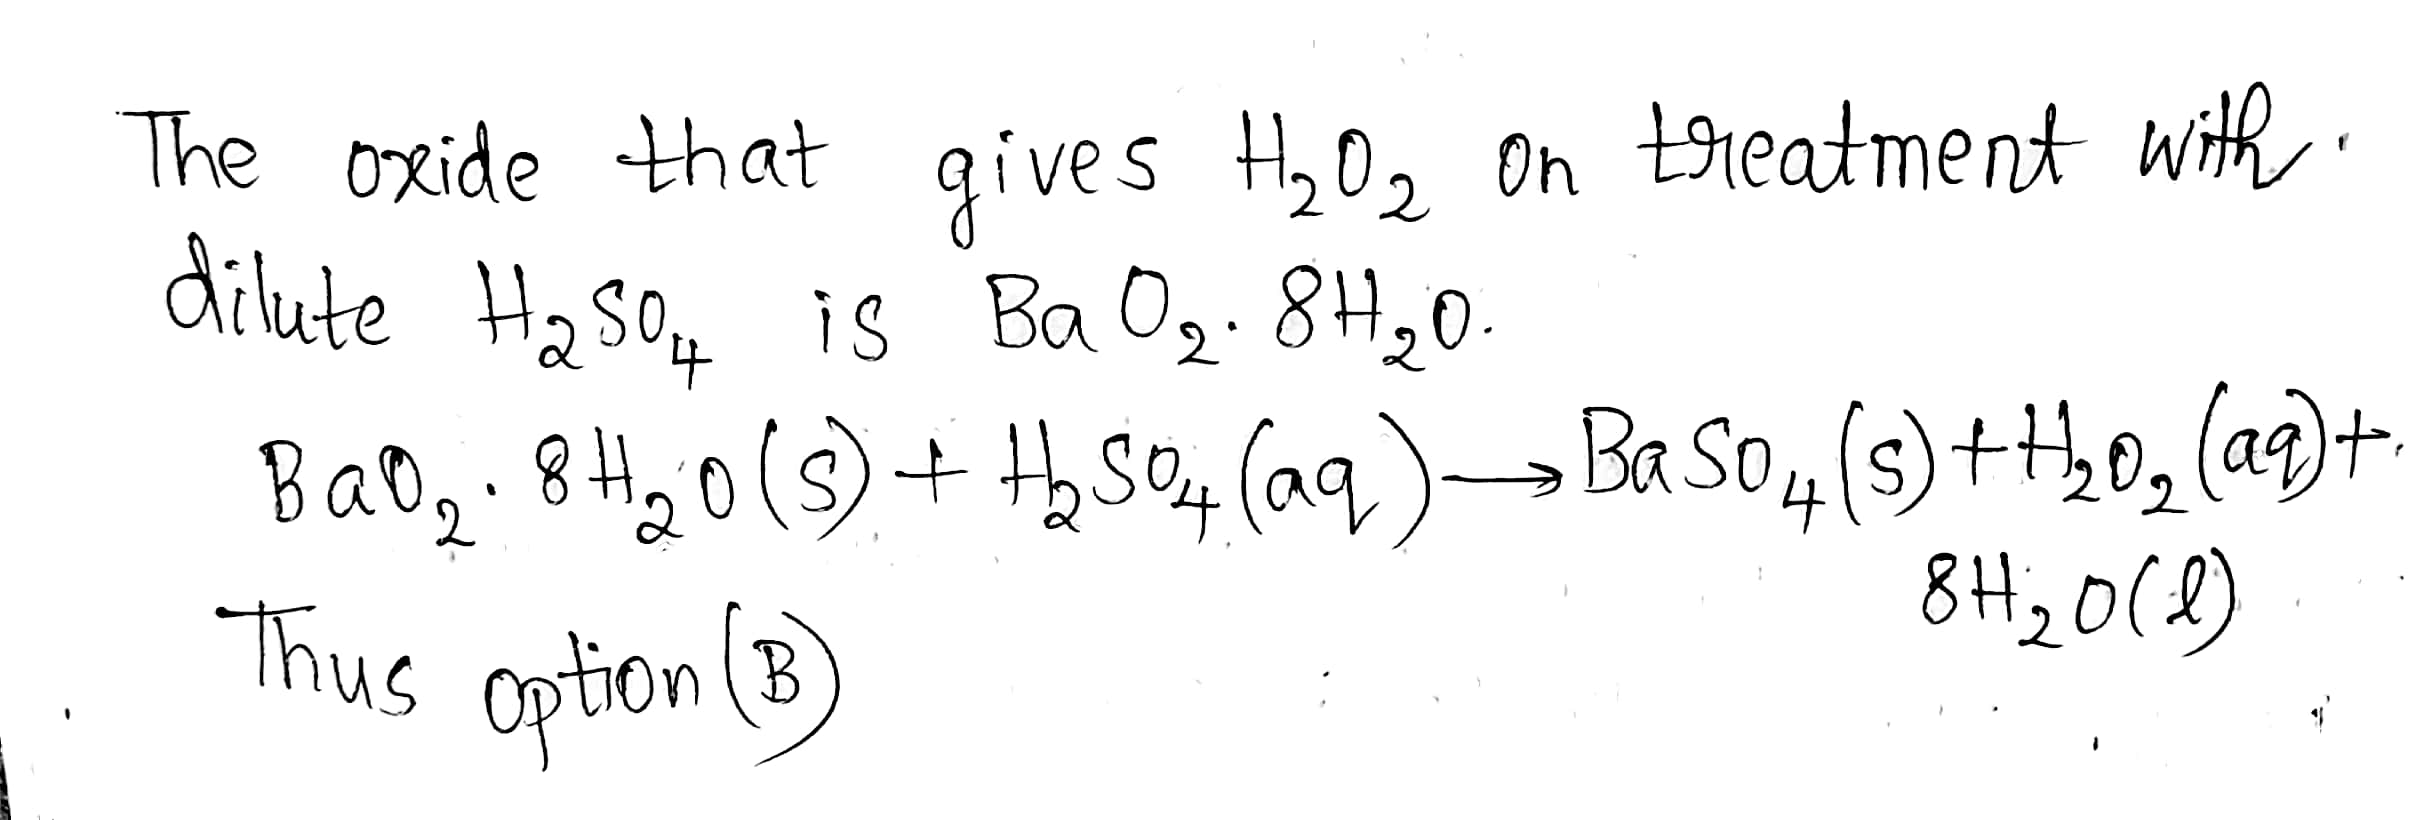 The oxide that gives H₂O₂ on treatment with
dilute H₂SO₄ is BaO₂.8H₂O.
BaO₂.8H₂O(s) + H₂SO₄(aq) → BaSO₄(s) + H₂O₂(aq) +
8H₂O(l)
Thus option (B)